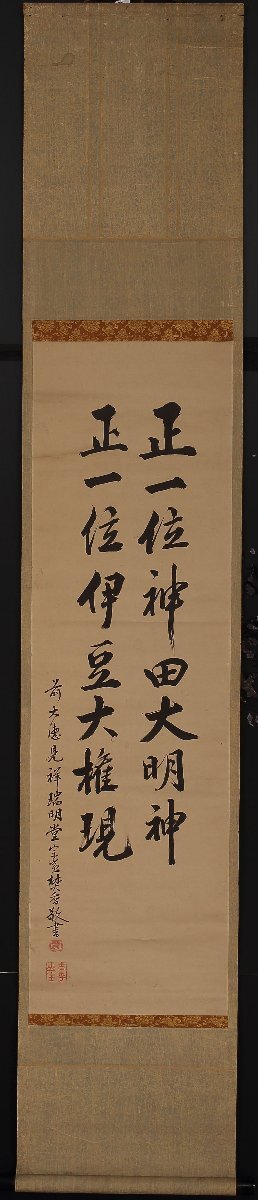 正一位神田大明神
正一位伊豆大権現
前大徳見祥瑞明堂宗宣焚香敬書